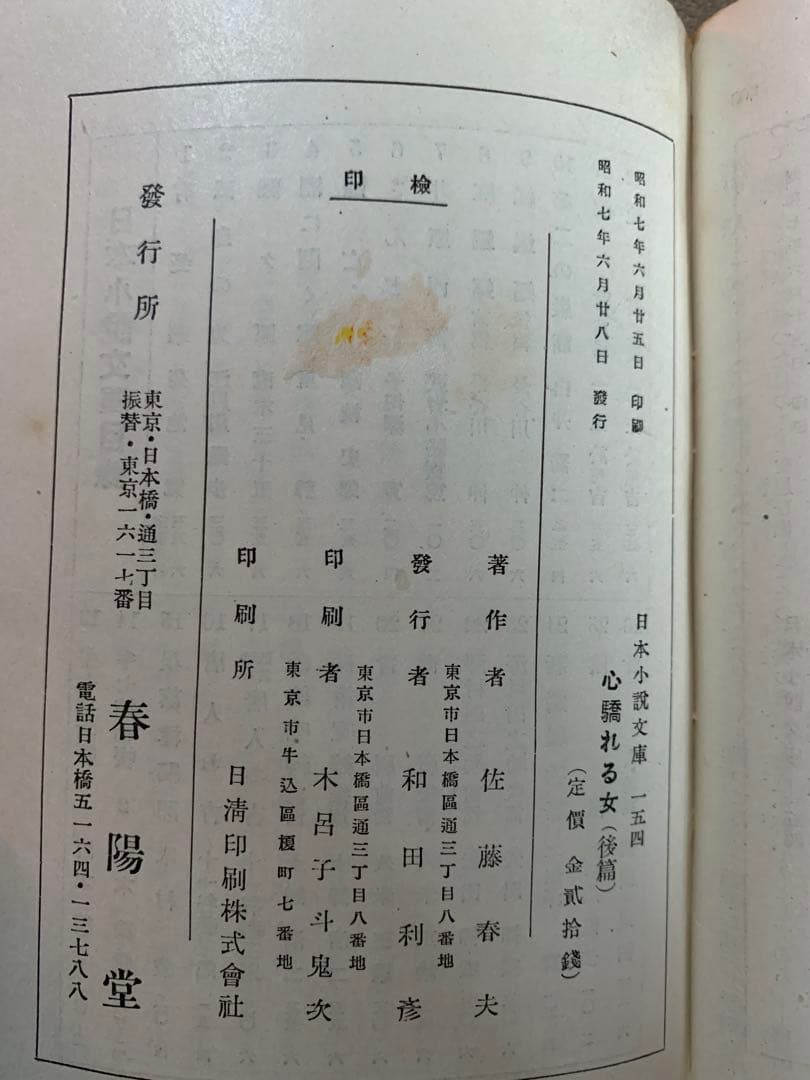 昭和七年六月廿五日 印刷
昭和七年六月廿八日 發行
日本小説文庫 一五四
心驕れる女(後篇)
(定價 金貳拾錢)
檢印
著作者 佐藤春夫
東京市日本橋區通三丁目八番地
發行者 和田利彥
東京市日本橋區通三丁目八番地
印刷者 木呂子斗鬼次
東京市牛込區榎町七番地
印刷所 日淸印刷株式會社
發行所
東京・日本橋・通三丁目
振替・東京一六一七番
春陽堂
電話日本橋五一六四・一三七八八